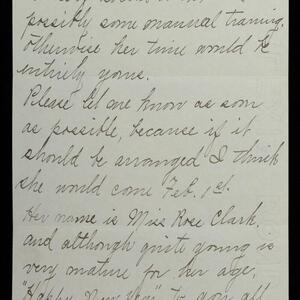 possibly some manual training.
Otherwise her time would be
entirely yours.
Please let me know as soon
as possible, because if it
should be arranged I think
she would come Feb. 1st.
Her name is Miss Rose Clark,
and although quite young is
very mature for her age.
"Happy New Year" to you all